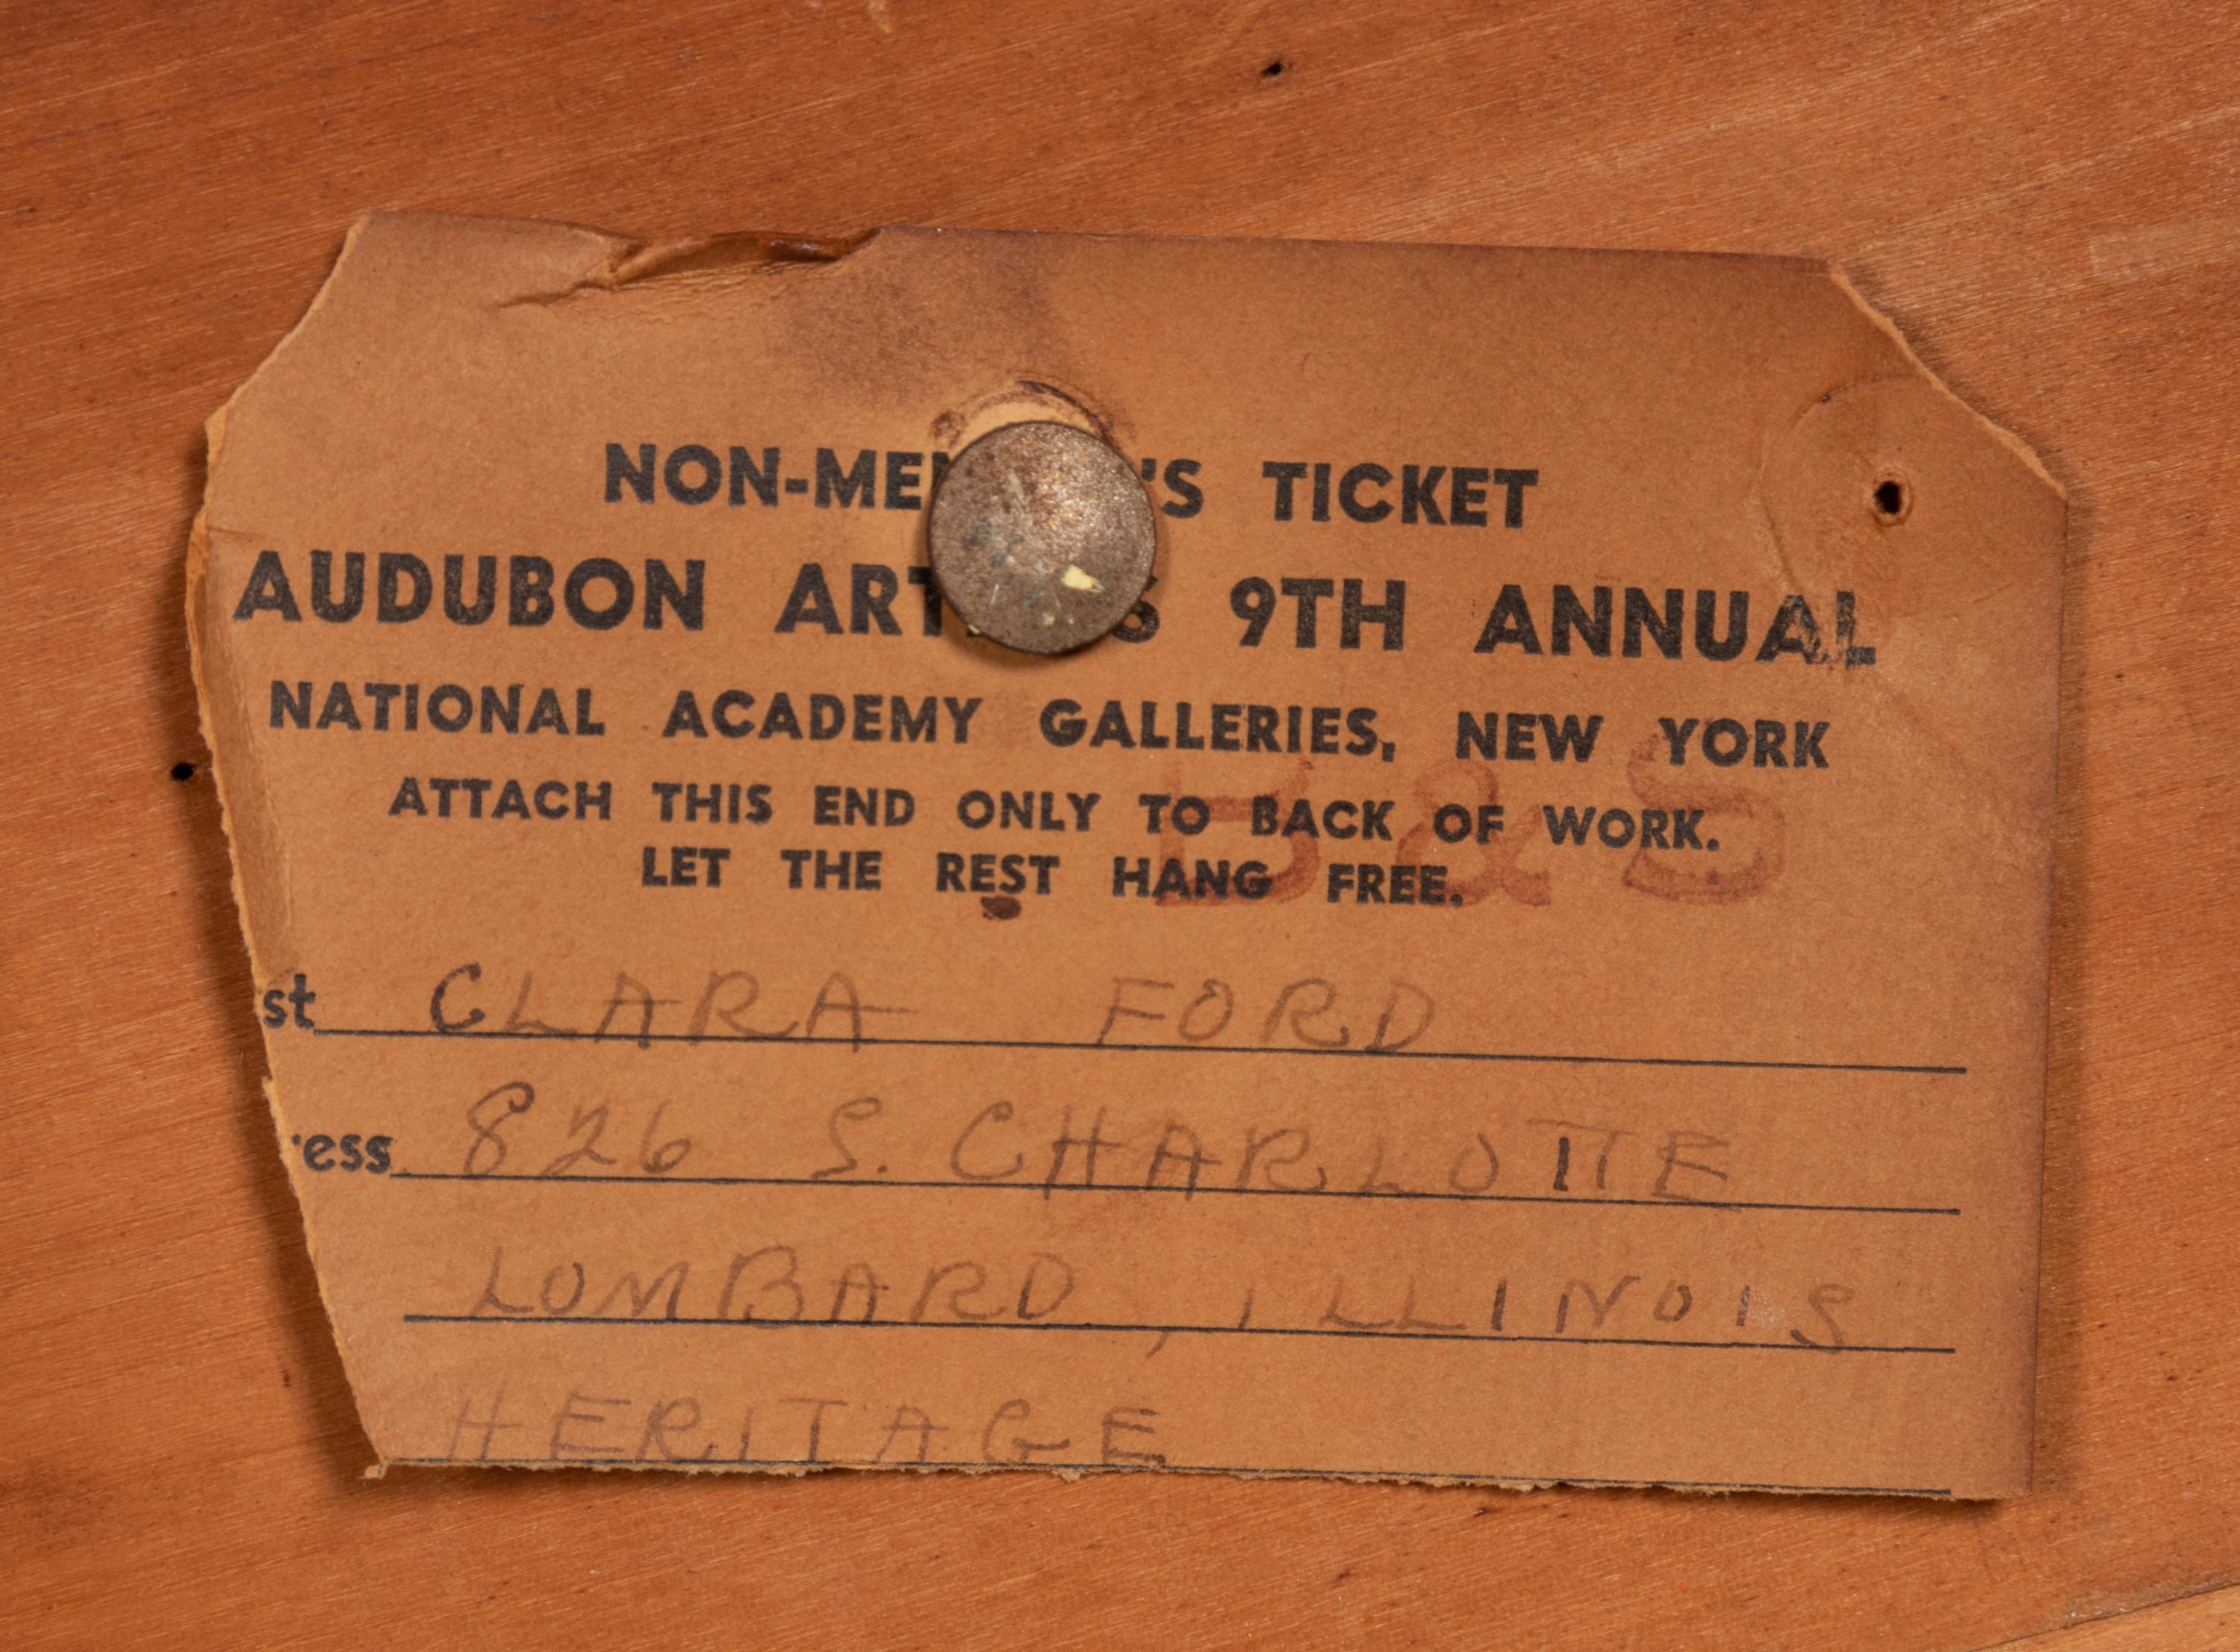 NON-ME 'S TICKET
AUDUBON ART S 9TH ANNUAL
NATIONAL ACADEMY GALLERIES, NEW YORK
B & S
ATTACH THIS END ONLY TO BACK OF WORK.
LET THE REST HANG FREE.
st CLARA FORD
ress 826 S. CHARLOTTE
LOMBARD, ILLINOIS
HERITAGE